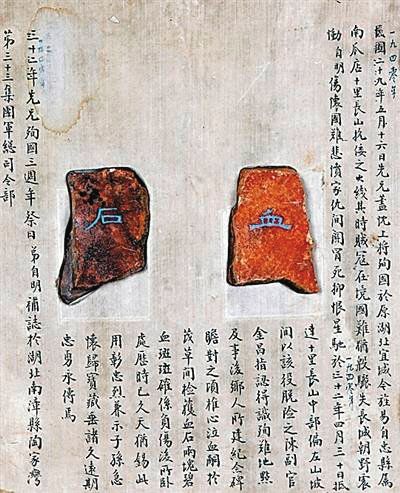 一九四零年
民國二十九年五月十六日先兄藎忱上將殉國於原湖北宜城今茲易自忠縣屬
南瓜店十里長山抗倭之火线其時賊寇在境國難猶殷驟失長城朝野震
慟自明傷懷國難悲憤家仇間關冒死抑恨星馳於三十二年四月三十日抵
達十里長山中部偏左山坡
間以該役脫险之陳副官
金昌指認得識殉難地點
及事後鄉人所建紀念碑
瞻對之頃椎心泣血嗣於
茂草間檢獲血石兩塊碧
血斑斑確係負傷後所卧
處歷時已久天猶錫此
用彰忠烈眷示子孫急
懷歸寶藏垂諸久遠期
忠勇永傳焉
血
石
三十二年先兄殉國三週年祭日弟自明補誌於湖北南漳縣陶家灣
第三十三集團軍總司令部